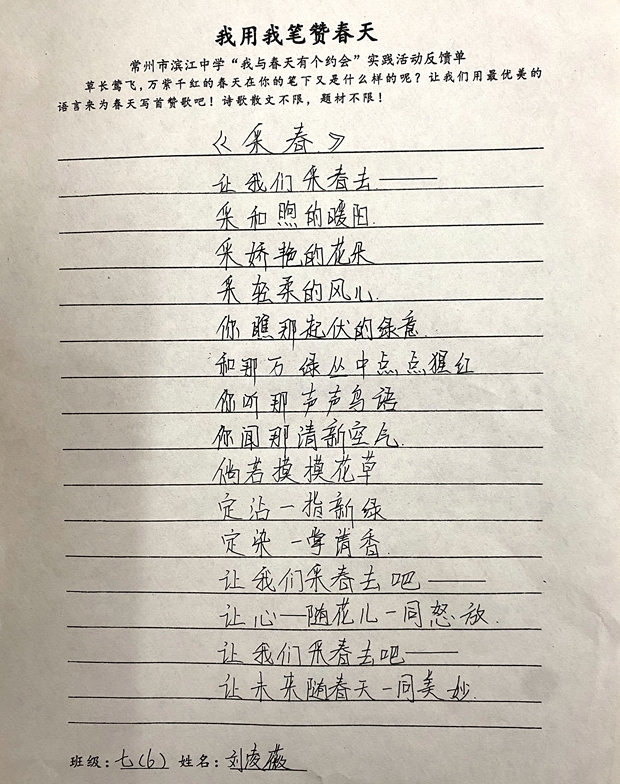 我用我笔赞春天
常州市滨江中学“我与春天有个约会”实践活动反馈单
草长莺飞，万紫千红的春天在你的笔下又是什么样的呢？让我们用最优美的
语言来为春天写首赞歌吧！诗歌散文不限，题材不限！
《采春》
让我们采春去——
采和煦的暖阳.
采娇艳的花朵
采轻柔的风儿.
你瞧那起伏的绿意.
和那万绿丛中点点猩红
你听那声声鸟语
你闻那清新空气.
倘若摸摸花草
定沾一指新绿
定染一掌清香.
让我们采春去吧——
让心一随花儿一同怒放.
让我们采春去吧——
让未来随春天一同美妙.
班级：七(6) 姓名：刘凌薇